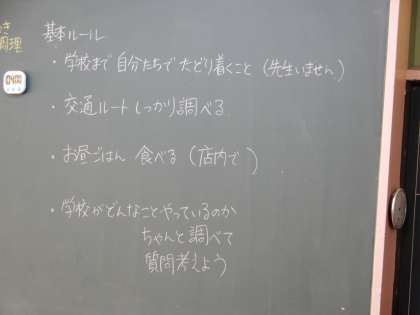 基本ルール
調理
・学校まで 自分たちで たどり着くこと (先生いません)
・交通ルート しっかり調べる
・お昼ごはん 食べる (店内で )
・学校がどんなことやっているのか
ちゃんと調べて
質問考えよう